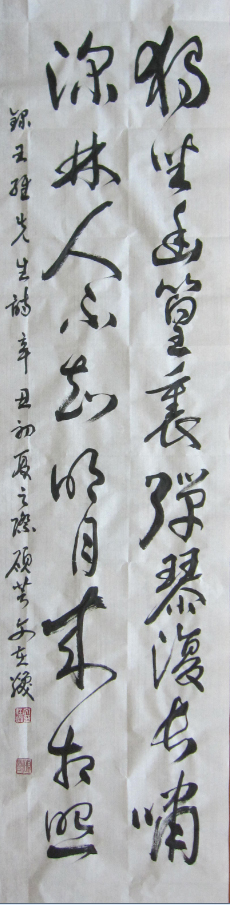 独坐幽篁里弹琴复长啸
深林人不知明月来相照
录王维先生诗辛丑初夏之际